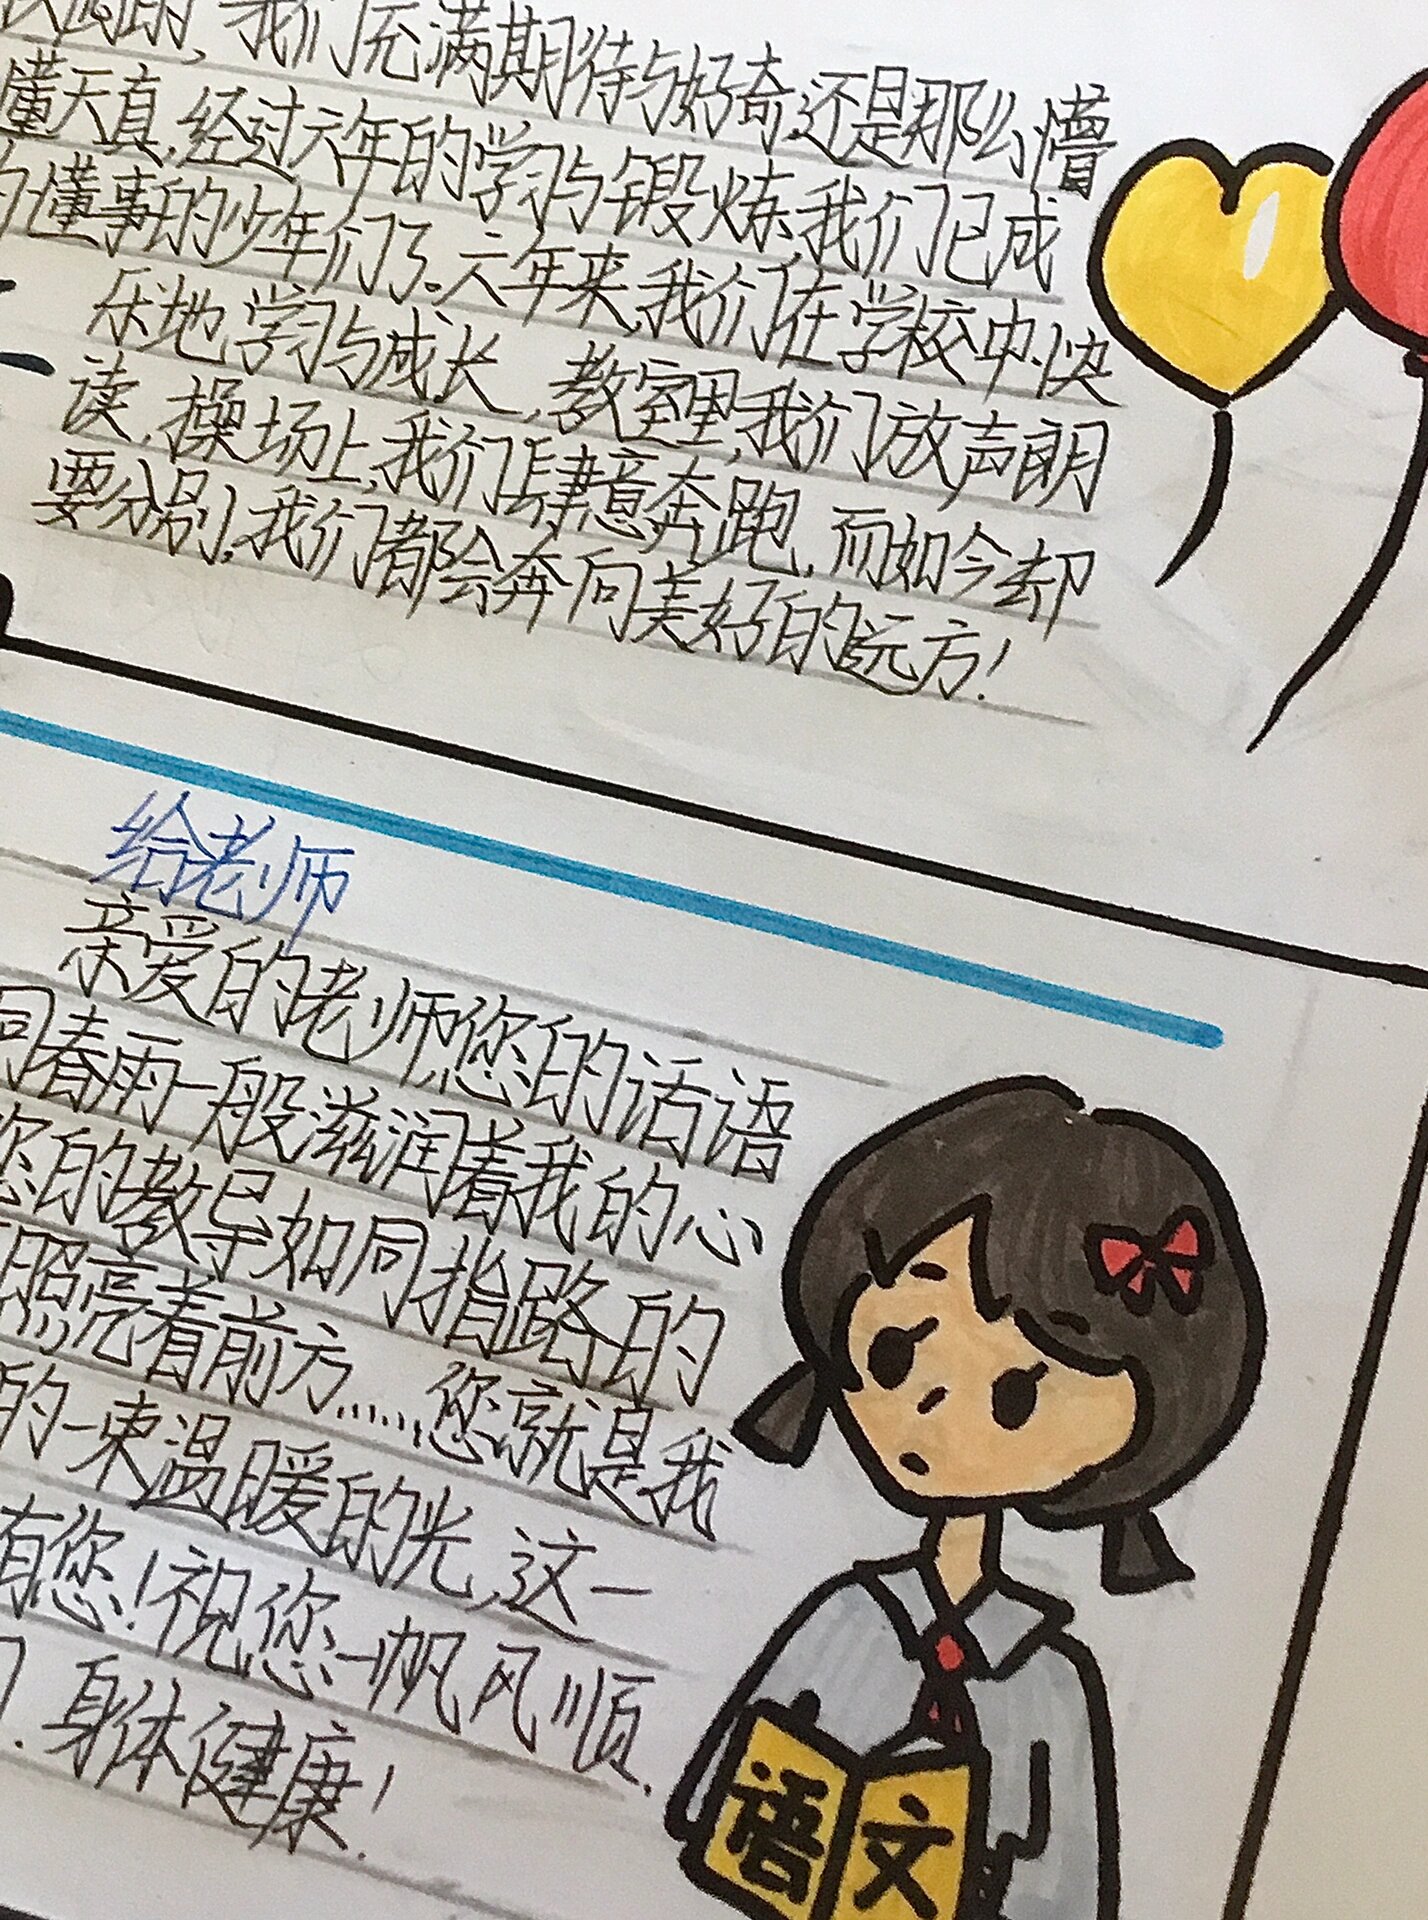 我们充满期待与好奇,还是那么懵
懂天真,经过六年的学习与锻炼,我们已成
懂事的少年们了。六年来,我们在学校中快
乐地学习与成长,教室里,我们放声朗
读,操场上,我们肆意奔跑,而如今却
要分别,我们都会奔向美好的远方!
给老师
亲爱的老师,您的话语
同春雨一般滋润着我的心
您的教导如同指路的
照亮着前方......您就是我
的一束温暖的光,这一
有您!祝您一帆风顺,
身体健康!
语文